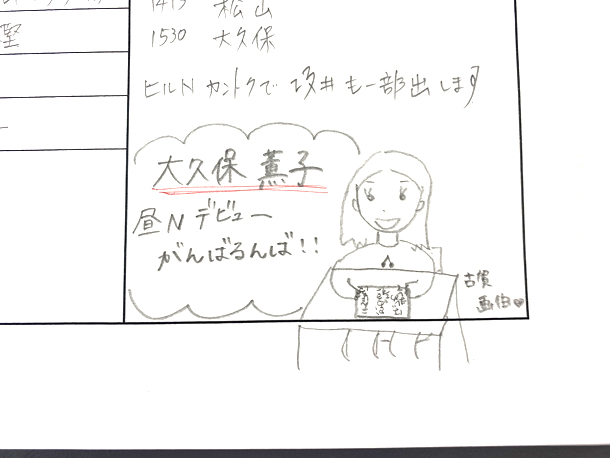 1415 松山
1530 大久保
ヒルN カントクで 坂井も一部出します
大久保 薫子
昼N デビュー
がんばるんば!!
古賀
画伯♥
NHK